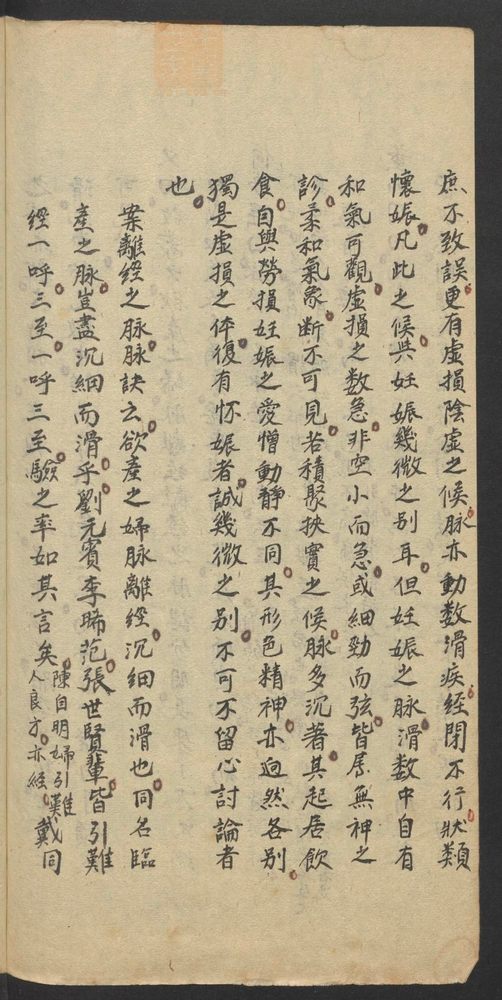 庶不致誤更有虛損陰虛之候脉亦動数滑疾経閉不行狀類
懷娠凡此之候與妊娠幾微之别耳但妊娠之脉滑数中自有
和氣可觀虛損之数急非空小而急或細勁而弦皆屬無神之
診柔和氣象断不可見若積聚挾實之候脉多沉著其起居飲
食自與勞損妊娠之愛憎動靜不同其形色精神亦迥然各别
獨是虛損之体復有怀娠者誠幾微之别不可不留心討論者
也
案離経之脉脉訣云欲産之婦脉離経沉細而滑也同名臨
産之脉豈盡沉細而滑乎劉元賓李晞范張世賢輩皆引難
経一呼三至一呼三至驗之率如其言矣陳自明婦人良方亦引難経戴同